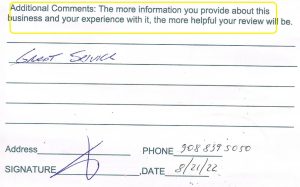 Additional Comments: The more information you provide about this
business and your experience with it, the more helpful your review will be.
Great Service
Address
PHONE 908 839 5050
SIGNATURE
,DATE 8/21/22